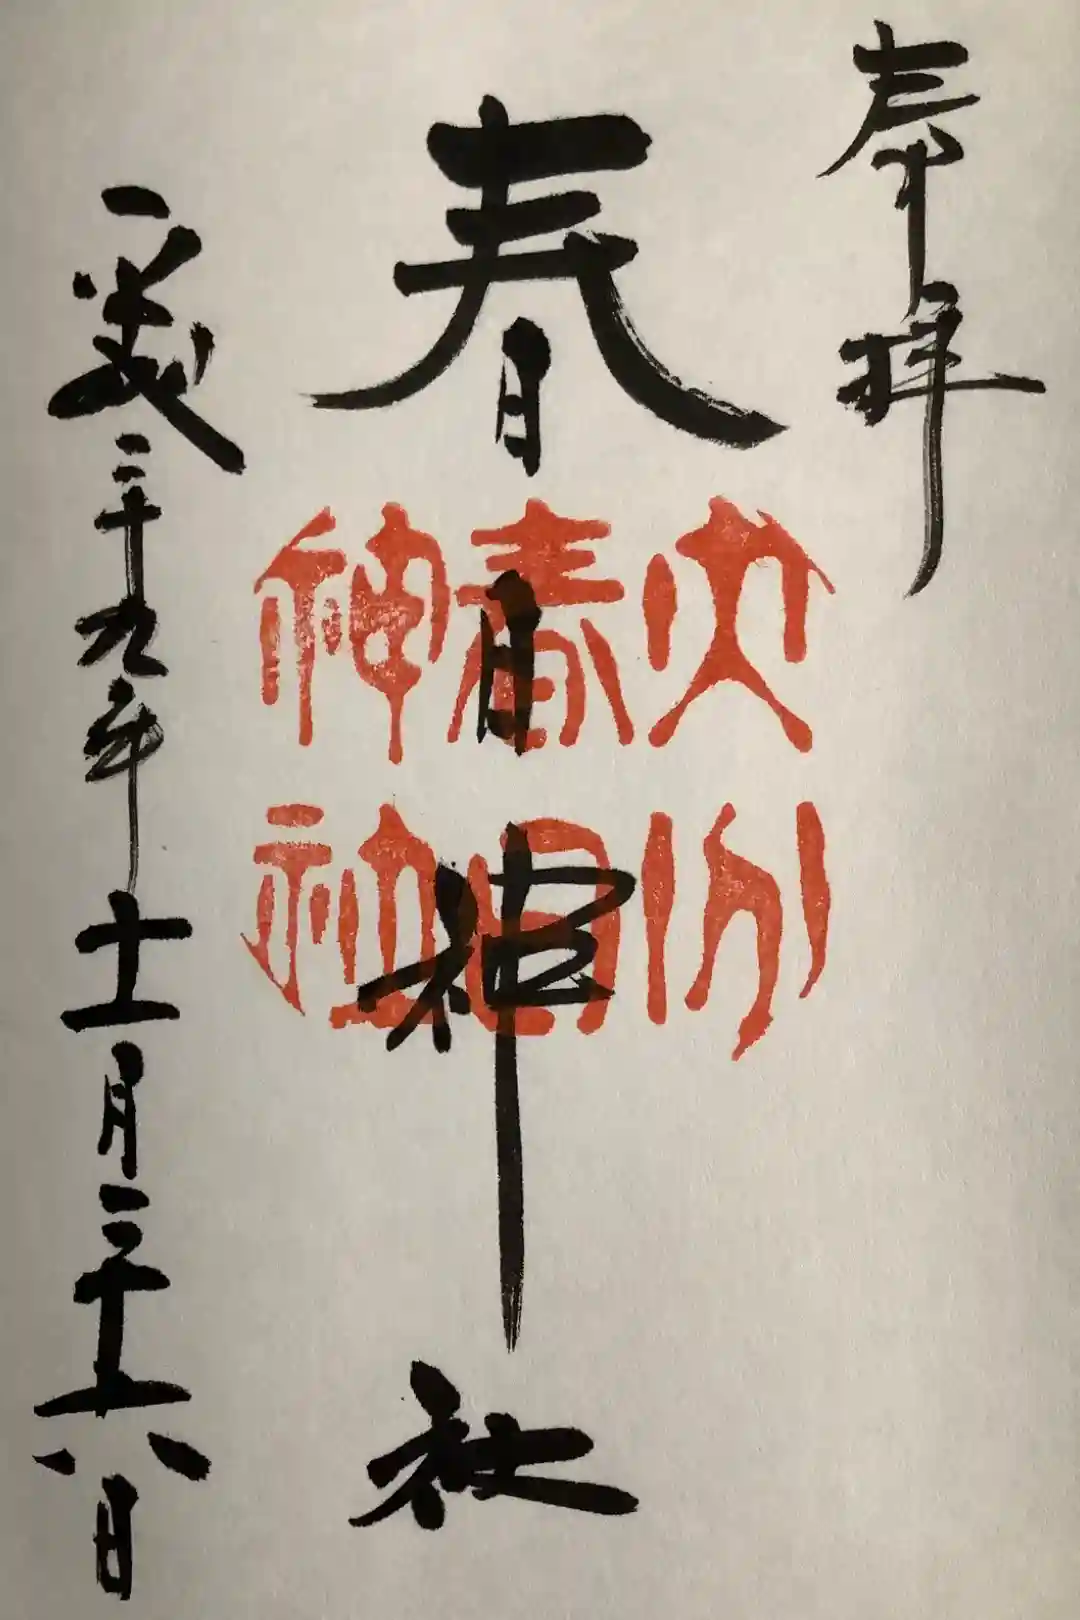 奉拝
春日神社
平成二十九年十一月二十六日
大分
春日
神社